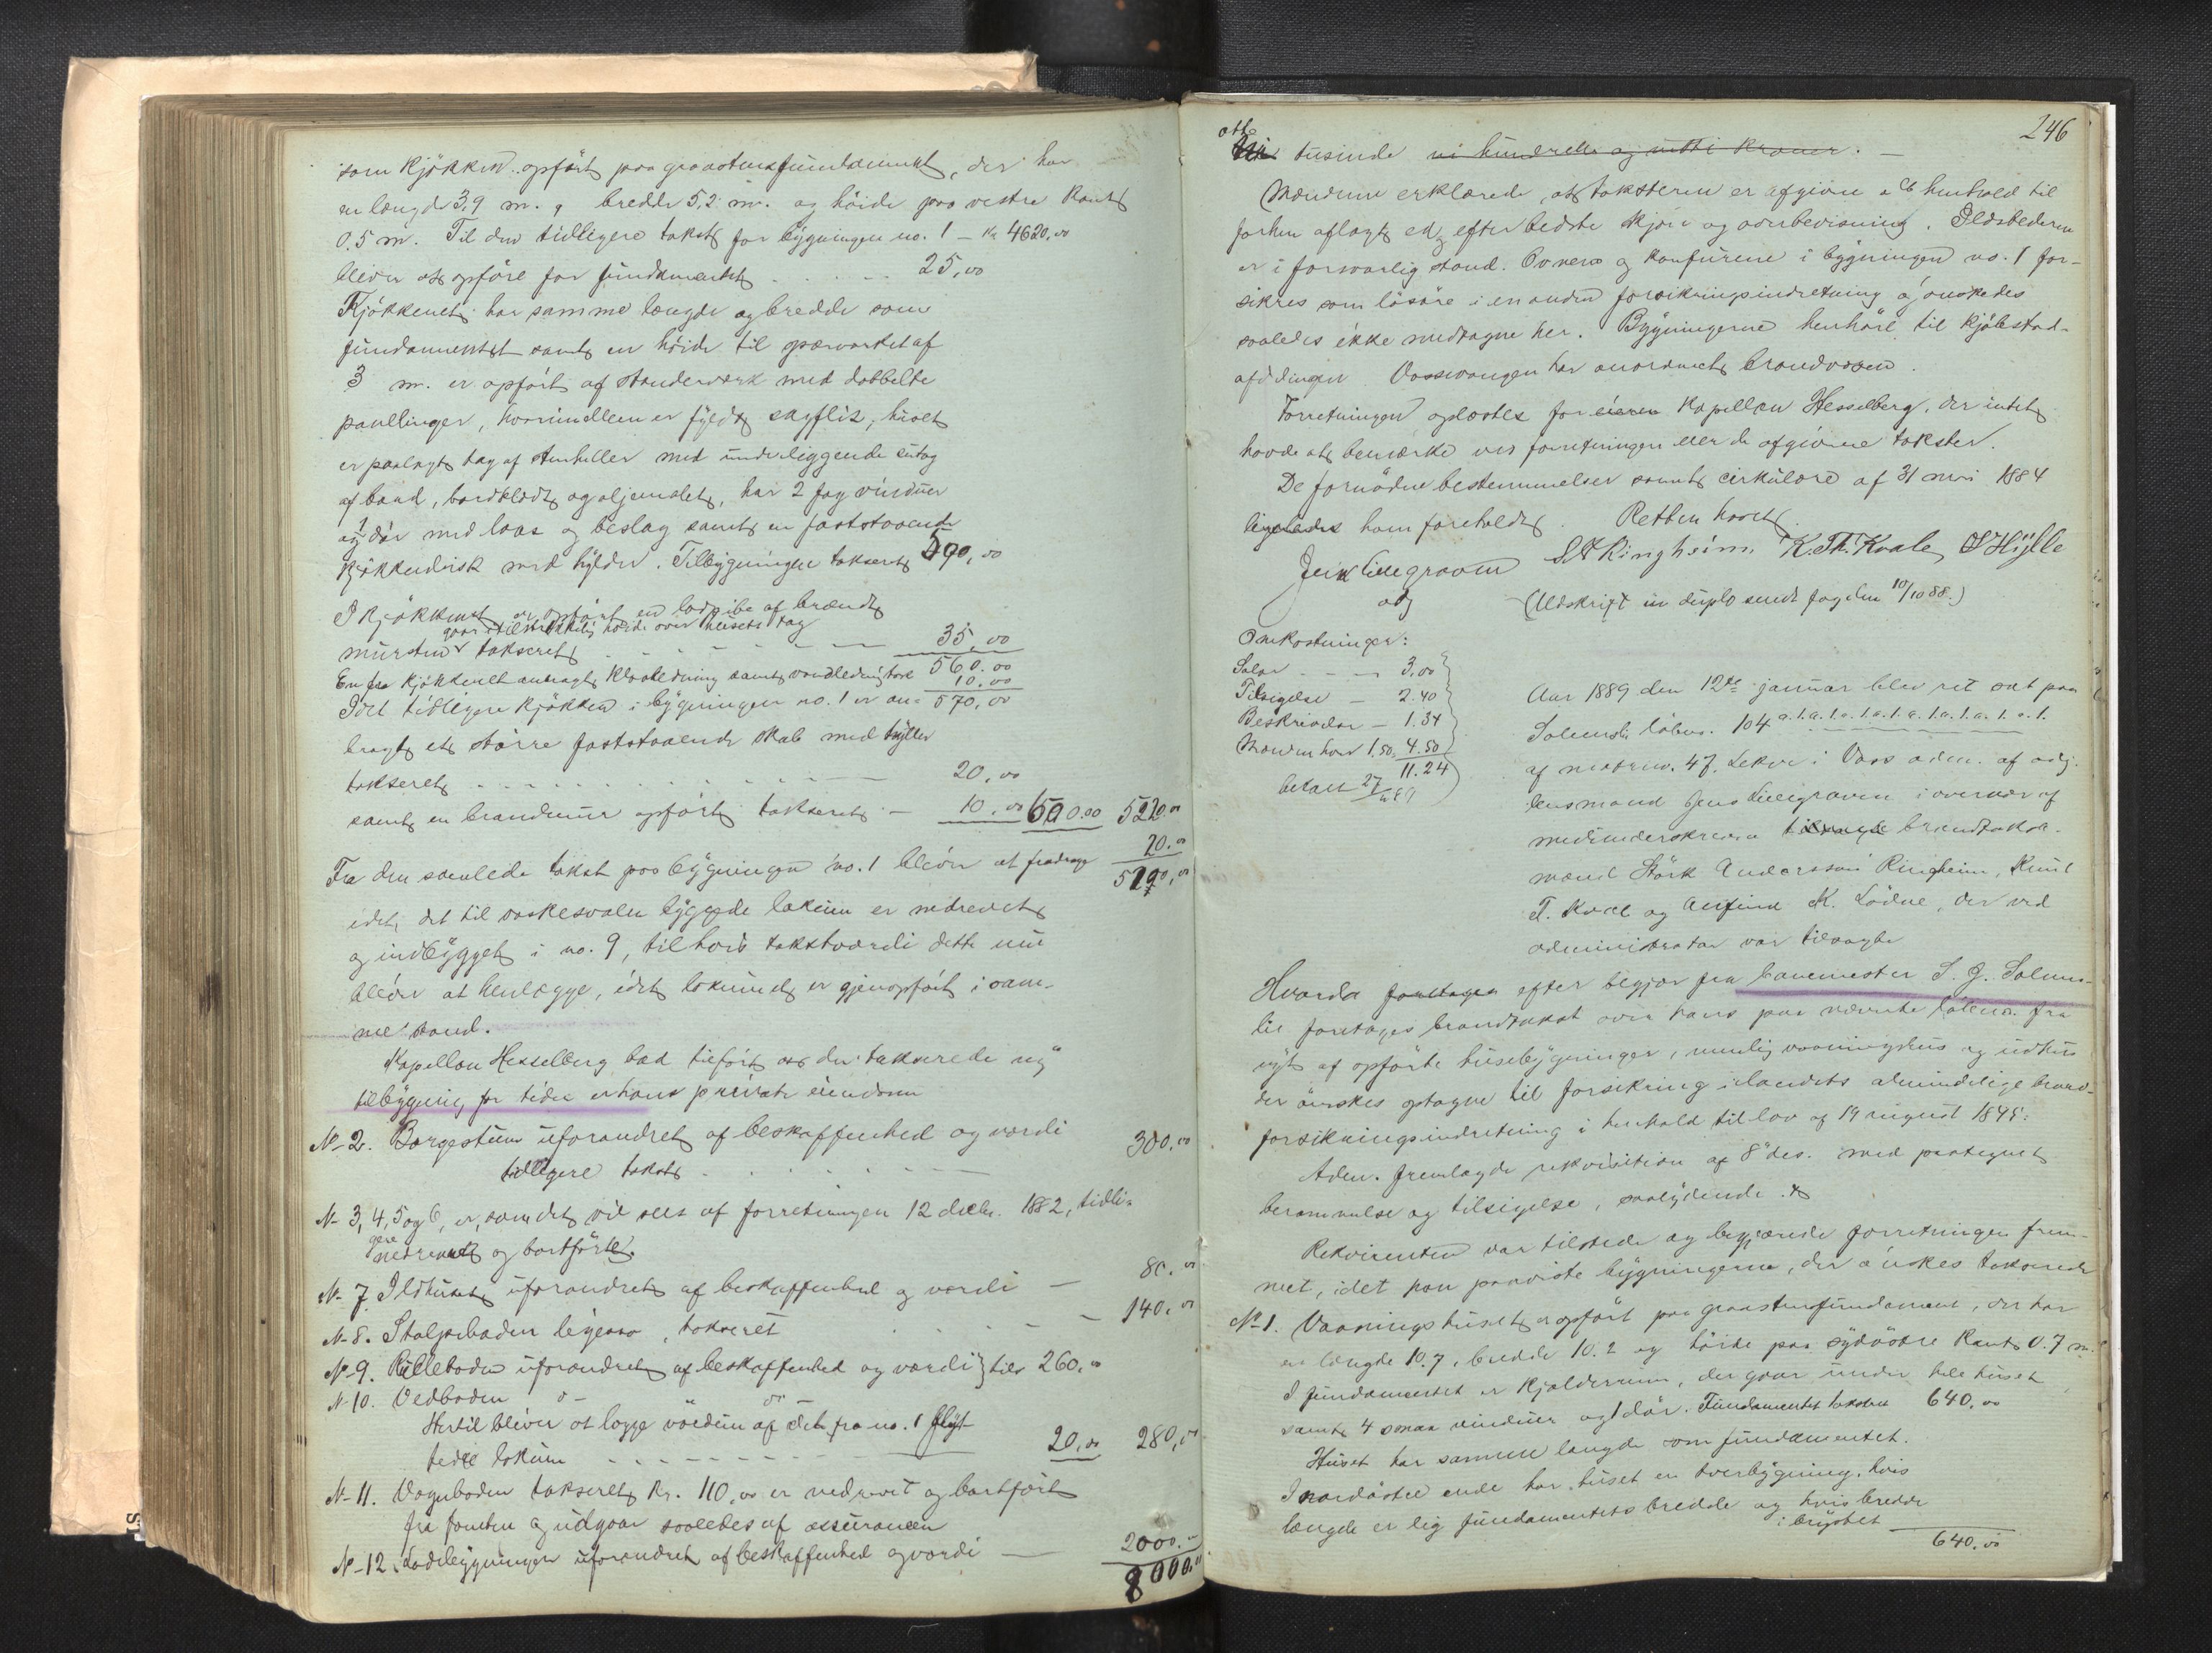 som kjökken opfört paa graastensfundament, der har
en længde 3,9 m., bredde 5,2 m. og höide paa vestre kant
0.5 m. Til den tidligere takst for bygningen no. 1 – kr 4620,00
bliver at opföre for fundamentet . . . 25,00
Kjökkenet har samme længde og bredde som
fundamentet samt en höide til
3 m. er opfört af standerværk med dobbelte
panellinger, hvorimellem er fyldt sagflis, huset
er paalagt tag af stenheller med underliggende
af bord, bordklædt og oljemalet, har 2 fag vinduer
og 1 dör med laas og beslag samt en faststaaende
kjökkendisk med hylder. Tilbygningen takseret 500,00
I kjökkenet er opfört en ladpibe af brændt
gaar i tilstrækkelig höide over husets tag
mursten takseret 35,00
560.00
En fra kjökkenet anbragt kloakledning samt vandledning takst 10.00
I det tidligere kjökken i bygningen no. 1 er an- 570,00
bragt et större faststaaende skab med hyller
takseret 20,00
samt en brandmur opfört takseret – 10.00 600.00 5220.00
Fra den samlede takst paa bygningen no. 1 bliver at fradrage 20.00
5200,00
idet det til vaskesvalen byggede lokum er nedrevet
og indbygget i no. 9, til hvis takstværdi dette nu
bliver at henlægge, idet lokumet er gjenopfört i sam-
me stand.
Kapellan Hesselberg bad tilfört at den takserede ny
tilbygning for tiden er hans private eiendom
No 2. Borgestuen uforandret af beskaffenhed og værdi
tidligere takst 300,00
No 3, 4, 5 og 6, er, som det vil sees af forretningen 12 decbr. 1882, tidli-
gere nedrevet og bortförte.
No 7. Ildhuset uforandret af beskaffenhed og værdi – 80.00
No 8. Stolpeboden ligesaa, takseret 140.00
No 9. Rulleboden uforandret af beskaffenhed og værdi } tils 260.00
No 10. Vedboden do do
Hertil bliver at lægge værdien af det fra no. 1 flyt-
tede lokum 20,00 280,00
No 11. Vognboden takseret kr. 110,00 er nedrevet og bortfört
fra tomten og udgaar saaledes af assurancen
No 12. Ladebygningen uforandret af beskaffenhed og værdi – 2000.00
8000.00
246
otte
tusinde ni hundrede og nitti kroner. –
Mændene erklærede, at taksterne er afgivne i henhold til
forhen aflagt ed, efter bedste skjön og overbevisning. Ildstederne
er i forsvarlig stand. Ovnene og komfurene i bygningen no. 1 for-
sikres som lösöre i en anden forsikringsindretning og önskedes
saaledes ikke medtagne her. Bygningerne henhöre til kjöbstad-
afdelingen. Vossevangen har anordnet brandvæsen.
Forretningen oplæstes for eieren kapellan Hesselberg, der intet
havde at bemærke ved forretningen eller de afgivne takster.
De fornödne bestemmelser samt cirkulære af 31 mai 1884
ligeledes ham foreholdt. Retten hævet.
Jens Lillegraven S A Ringheim K. Th. Kvale O Hylle
adj
(Udskrift in duplo sendt fogden 10/10 88.)
Omkostninger:
Salær – – – 3,00
Tilsigelse – 2.40
Beskrivelse – 1.34
Mændene hver 1.50, 4.50
11.24
betalt 27/
Aar 1889 den 12te januar blev ret sat paa
löbno. 104 a. l. a. l. a. l. a. l. a. l. a. l. a. l.
af matrno. 47, Lekve i Voss adm. af adj.
lensmand Jens Lillegraven i overvær af
medunderskrevne brandtakst-
mænd Störk Anderssön Ringheim, Knut
T. Kvale og K. Lödve, der ved
administrator var tilsagte
Hvorda foretages efter begjær fra banemester S. G. Solems-
lie foretages brandtakst over hans paa nævnte löbeno. fra
nyt af opförte husebygninger, nemlig vaaningshus og udhus
der önskes optagne til forsikring i landets almindelige brand-
forsikringsindretning i henhold til lov af 19 august 1845:
Adm. fremlagde rekvisition af 8 ds. med paategnet
berammelse og tilsigelse, saalydende
Rekvirenten var tilstede og begjærede forretningen frem-
met, idet han paaviste bygningerne, der önskes takserede
No 1. Vaaningshuset er opfört paa graastensfundament, der har
en længde 10.7, bredde 10.2 og höide paa sydöstre kant 0.7 m.
I fundamentet er kjælderrum, der gaar under hele huset
samt 4 smaa vinduer og 1 dör. Fundamentet takseret 640,00
Huset har samme længde som fundamentet.
I nordöstre ende har huset en tverbygning, hvis
længde er lig fundamentets bredde og hvis bredde
i brystet
640.00